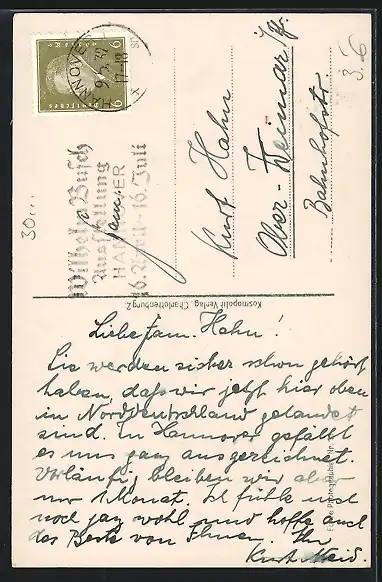 HANNOVER
Wilhelm Busch
Ausstellung
HANNOVER
16. April - 16. Juli
Deutsches Reich
6
Fam.
Kurt Hahn
Ober-Weimar
Bahnhofstr.
Kosmopolit Verlag, Charlottenburg 2
30
3.6
Liebe Fam. Hahn!
Sie werden sicher schon gehört
haben, dass wir jetzt hier oben
in Norddeutschland gelandet
sind. In Hannover gefällt
es uns ganz ausgezeichnet.
Vorläufig bleiben wir aber
nur 1 Monat. Ich fühle mich
noch ganz wohl und hoffe auch
das Beste von Ihnen. Ihr
Kurt